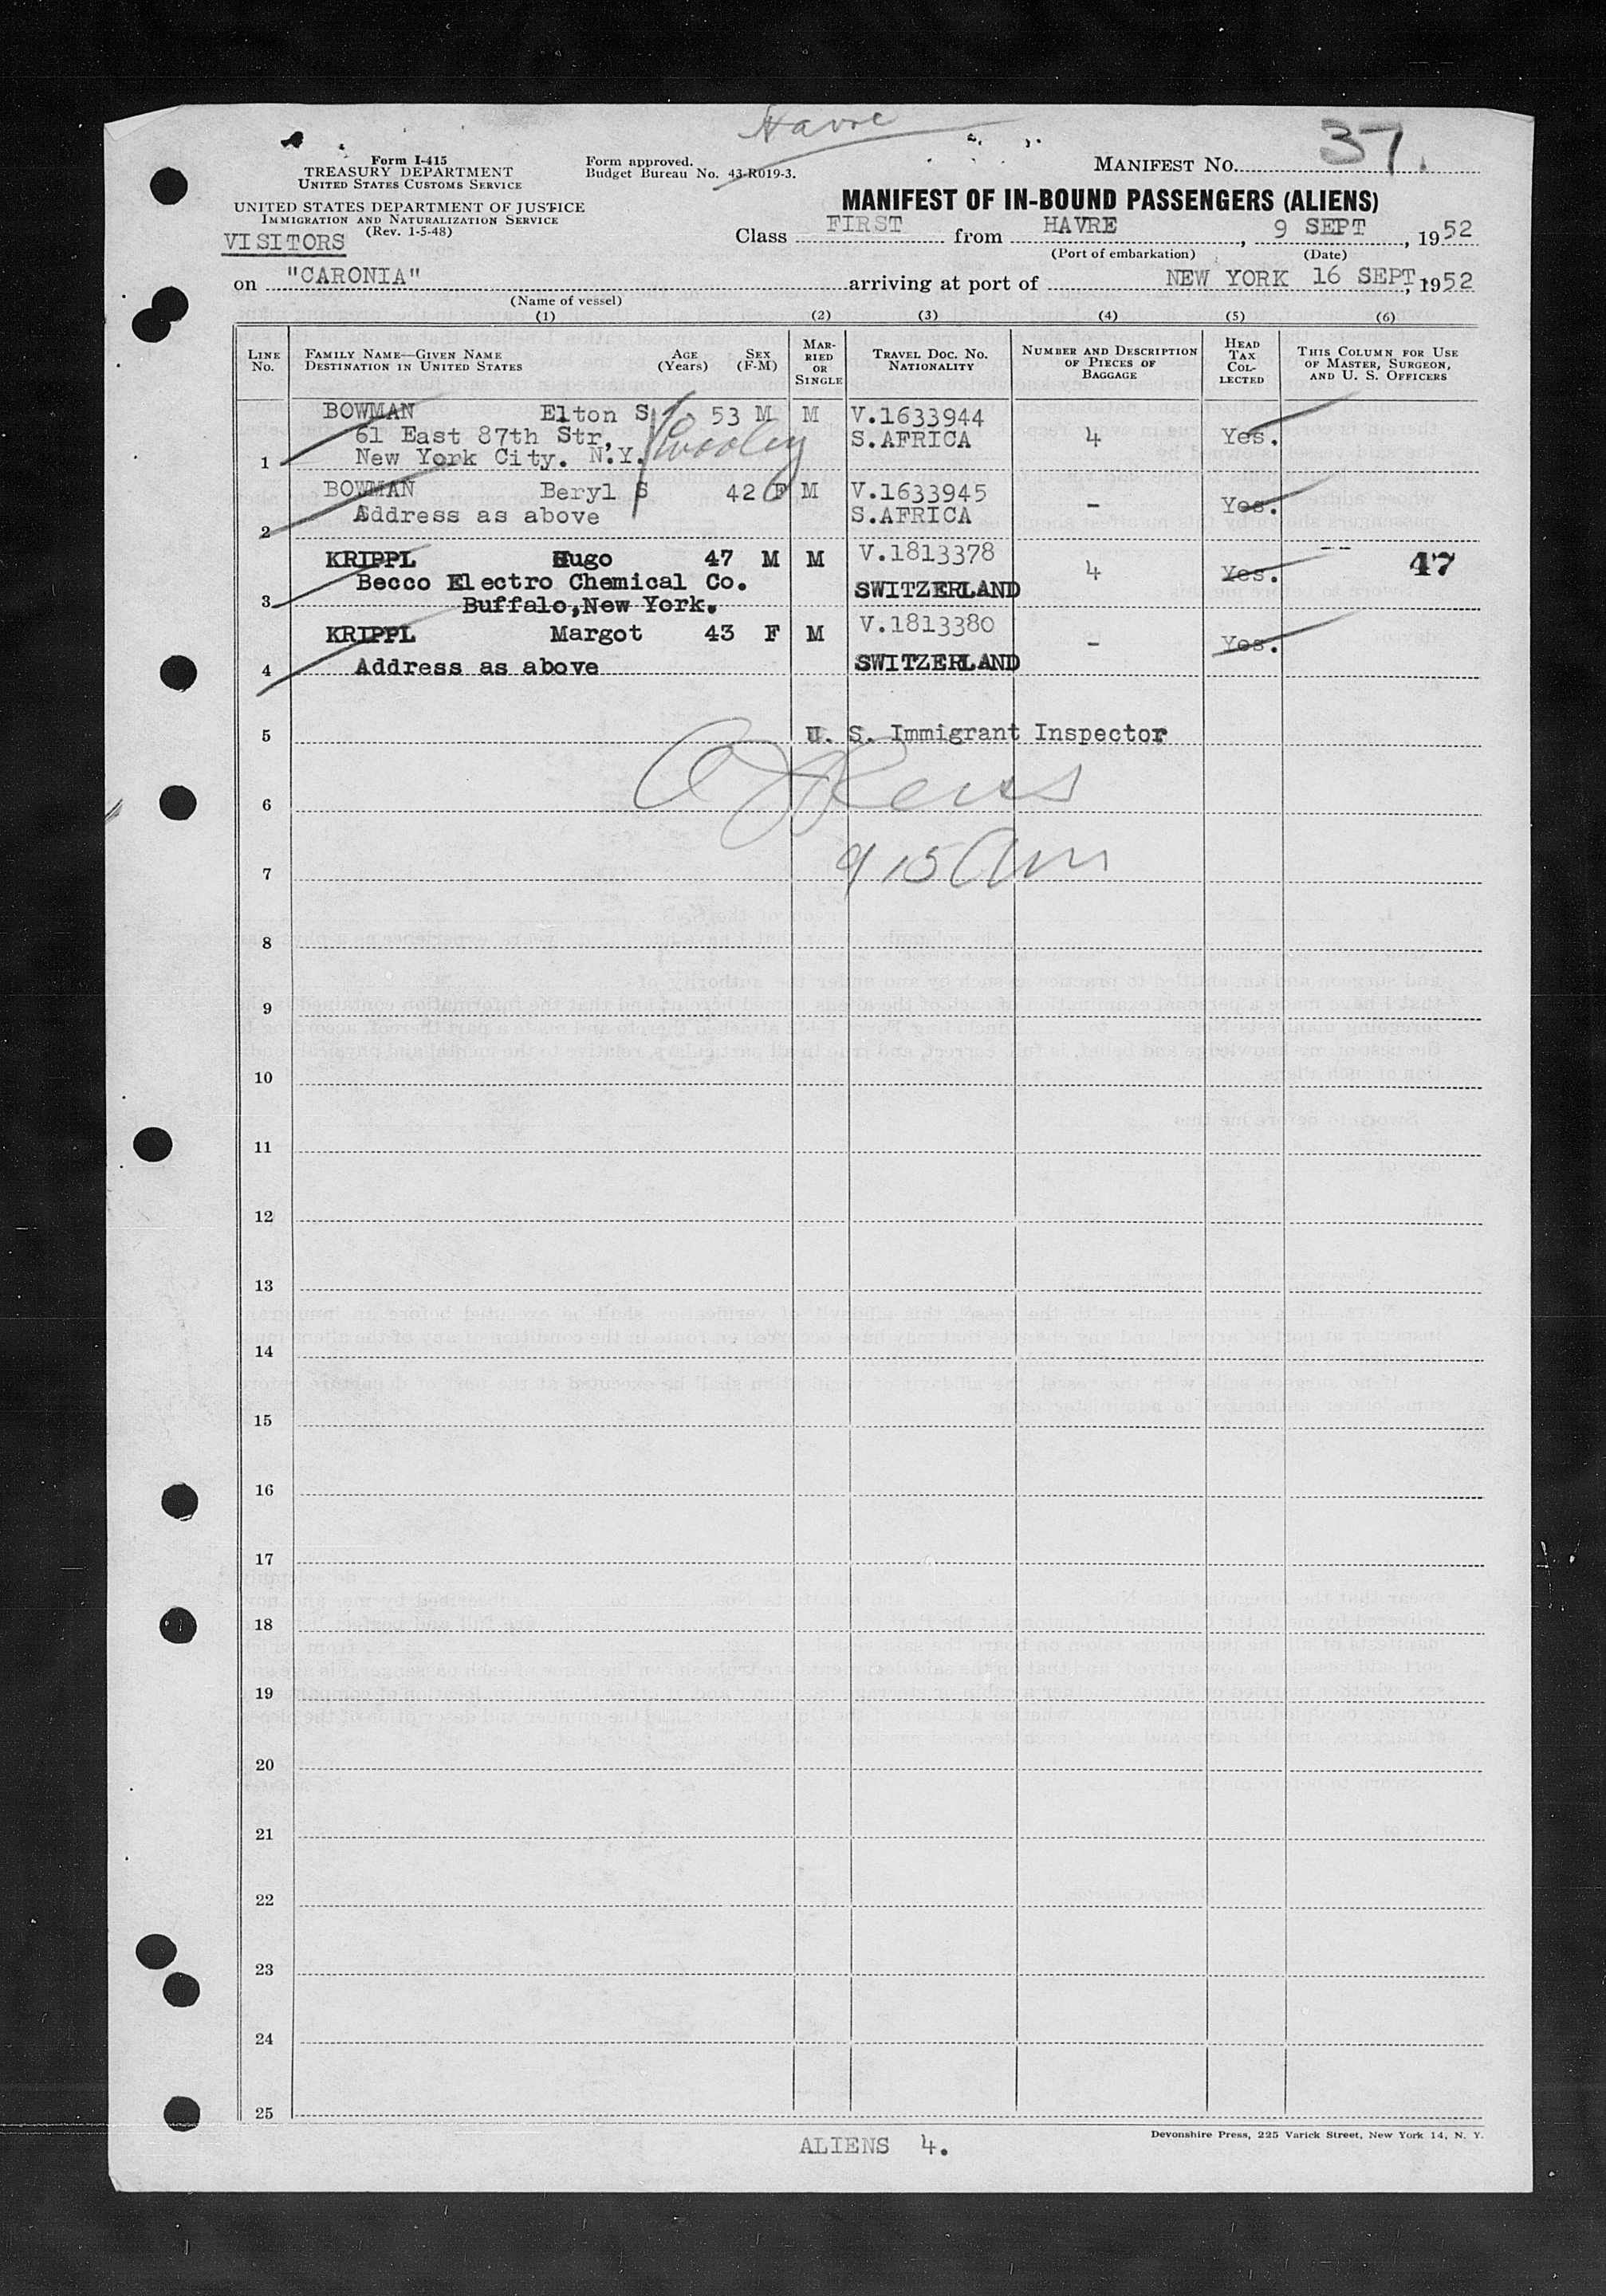 Havre
Form I-415
TREASURY DEPARTMENT
UNITED STATES CUSTOMS SERVICE
Form approved.
Budget Bureau No. 43-R019-3.
MANIFEST No. 37
UNITED STATES DEPARTMENT OF JUSTICE
IMMIGRATION AND NATURALIZATION SERVICE
(Rev. 1-5-48)
MANIFEST OF IN-BOUND PASSENGERS (ALIENS)
VISITORS
Class FIRST from HAVRE, 9 SEPT, 1952
(Port of embarkation) (Date)
on "CARONIA" arriving at port of NEW YORK 16 SEPT, 1952
(Name of vessel)
(1) (2) (3) (4) (5) (6)
LINE No.
FAMILY NAME—GIVEN NAME
DESTINATION IN UNITED STATES
AGE (Years)
SEX (F-M)
MARRIED OR SINGLE
TRAVEL DOC. NO.
NATIONALITY
NUMBER AND DESCRIPTION OF PIECES OF BAGGAGE
HEAD TAX COLLECTED
THIS COLUMN FOR USE OF MASTER, SURGEON, AND U. S. OFFICERS
BOWMAN Elton S 53 M M V.1633944
61 East 87th Str, S.AFRICA 4 Yes.
1 New York City. N.Y.
BOWMAN Beryl S 42 F M V.1633945
Address as above S.AFRICA - Yes.
2
KRIPPL Hugo 47 M M V.1813378 4 Yes. 47
Becco Electro Chemical Co. SWITZERLAND
3 Buffalo,New York.
KRIPPL Margot 43 F M V.1813380 - Yes.
4 Address as above SWITZERLAND
5 U. S. Immigrant Inspector
6
7 9 15 Am
8
9
10
11
12
13
14
15
16
17
18
19
20
21
22
23
24
25
ALIENS 4.
Devonshire Press, 225 Varick Street, New York 14, N. Y.